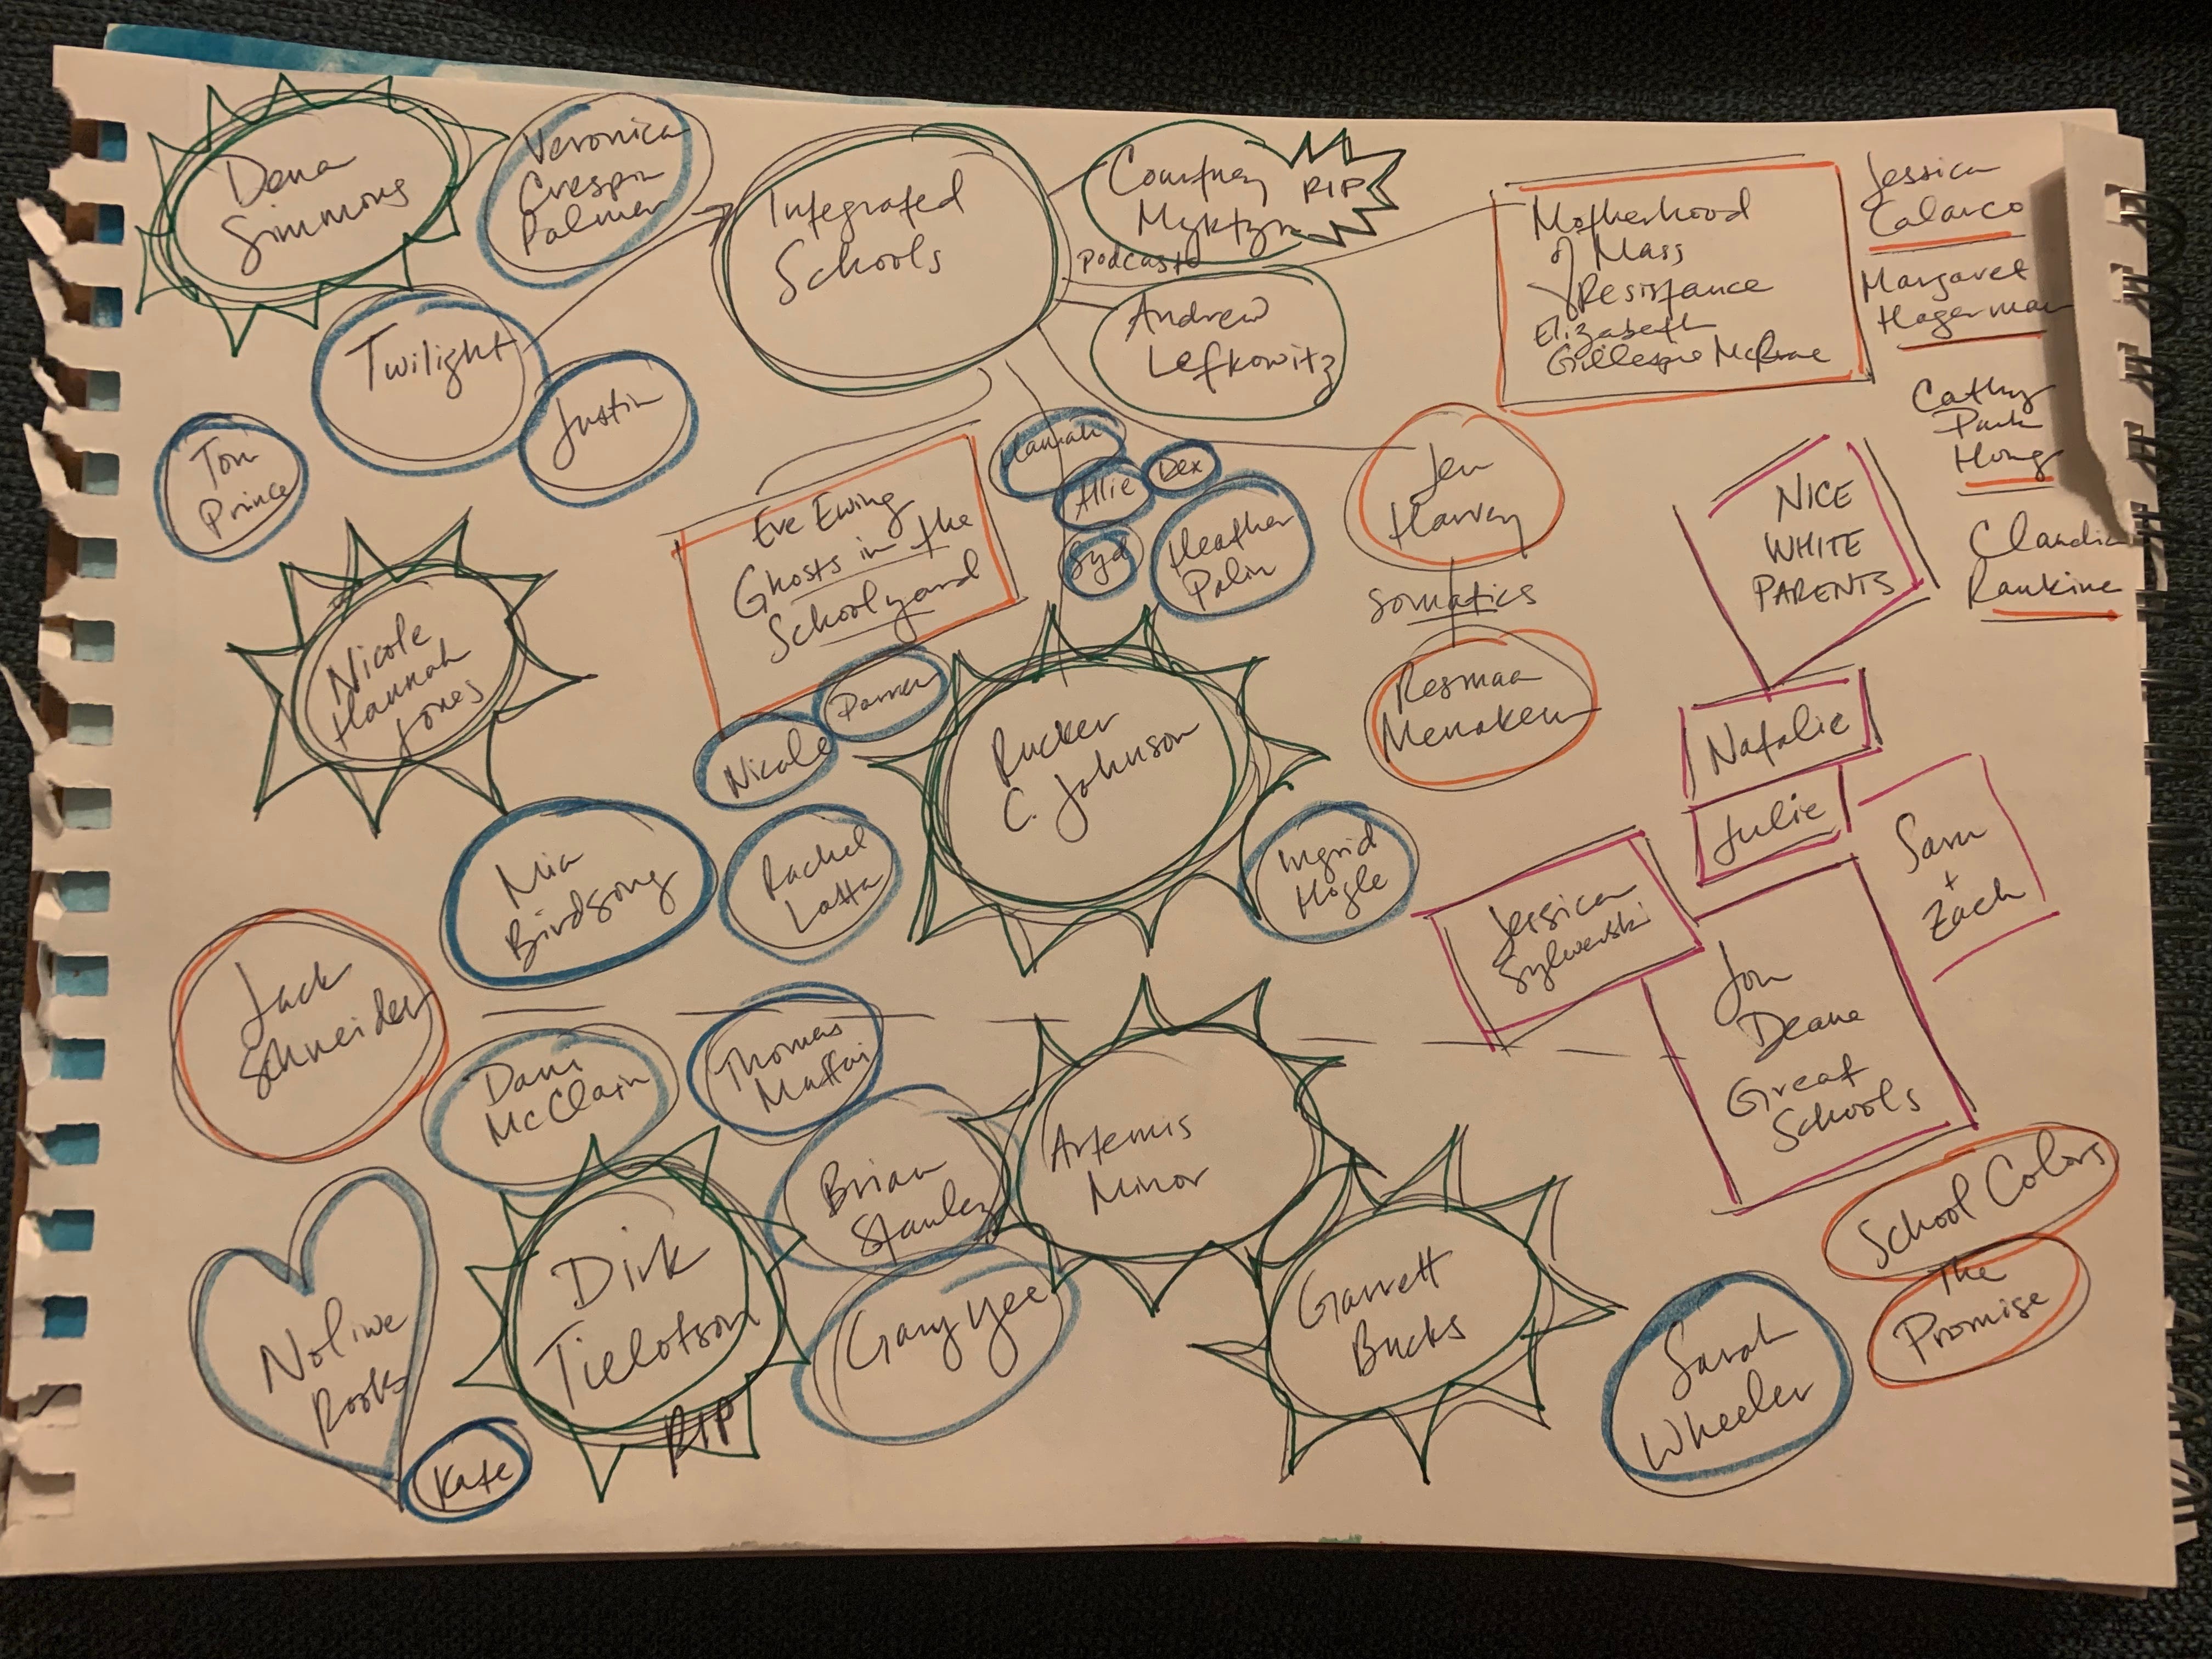 Dena
Simmons
Veronica
Crespin
Palmer
Integrated
Schools
Courtney
Myktyn
RIP
podcast
Andrew
Lefkowitz
Motherhood
of Mass
Resistance
Elizabeth
Gillespie McRae
Jessica
Calarco
Margaret
Hagerman
Cathy
Park
Hong
Claudia
Rankine
Twilight
Justin
Tom
Prince
Hannah
Allie
Dex
Syd
Heather
Palin
Eve Ewing
Ghosts in the
Schoolyard
Jen
Harvey
somatics
Resmaa
Menakem
NICE
WHITE
PARENTS
Natalie
Julie
Sam
+
Zach
Nicole
Hannah
Jones
Nicole
Rucker
C. Johnson
Mia
Birdsong
Rachel
Latta
Ingrid
Hogle
Jessica
Jon
Deane
Great
Schools
Jack
Schneider
Dani
McClain
Thomas
Brian
Stanley
Artemis
Minor
School Colors
The
Promise
Noliwe
Rooks
Kate
Dirk
Tielotson
RIP
Gary Yee
Garrett
Bucks
Sarah
Wheeler